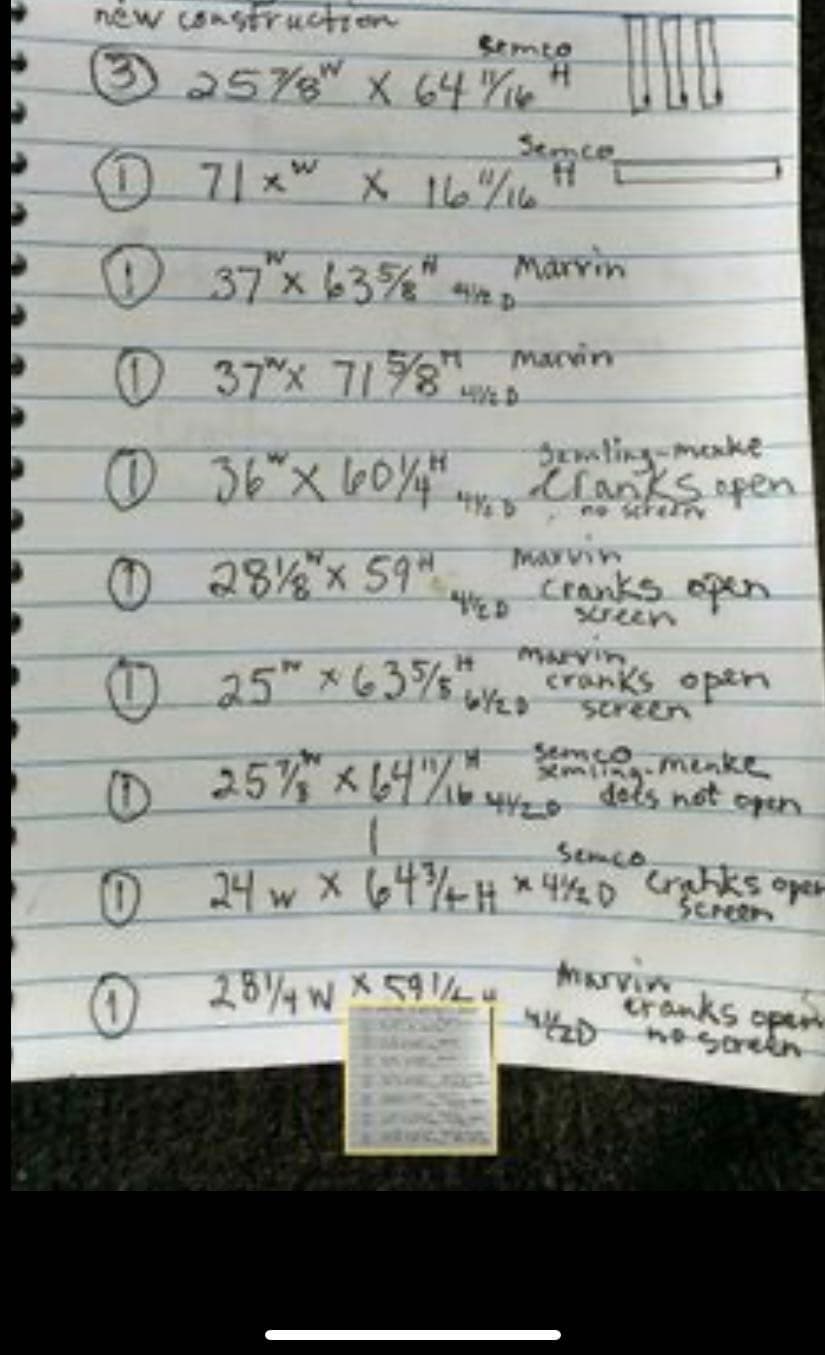 new construction
Semco
③ 25 7/8 W X 64 11/16 H
Semco
① 71 x W X 16 11/16 H
① 37 W x 63 5/8 H 4 1/2 D Marvin
① 37 W x 71 5/8 H 4 1/2 D Marvin
Semling-menke
① 36 W X 60 1/4 H 4 1/2 D Cranks open
no screen
marvin
① 28 1/8 W x 59 H 4 1/2 D cranks open
screen
marvin
① 25 W x 63 5/8 H 6 1/2 D cranks open
screen
Semco
Semling-menke
① 25 7/8 W x 64 11/16 H 4 1/2 D does not open
Semco
① 24 W x 64 3/4 H x 4 1/2 D Cranks open
Screen
Marvin
① 28 1/4 W x 59 4 1/2 D cranks open
no screen